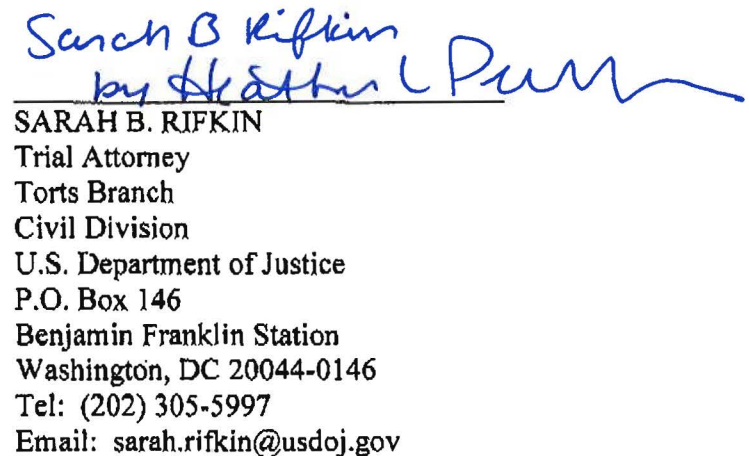 Sarah B Rifkin
by Heather L
SARAH B. RIFKIN
Trial Attorney
Torts Branch
Civil Division
U.S. Department of Justice
P.O. Box 146
Benjamin Franklin Station
Washington, DC 20044-0146
Tel: (202) 305-5997
Email: sarah.rifkin@usdoj.gov